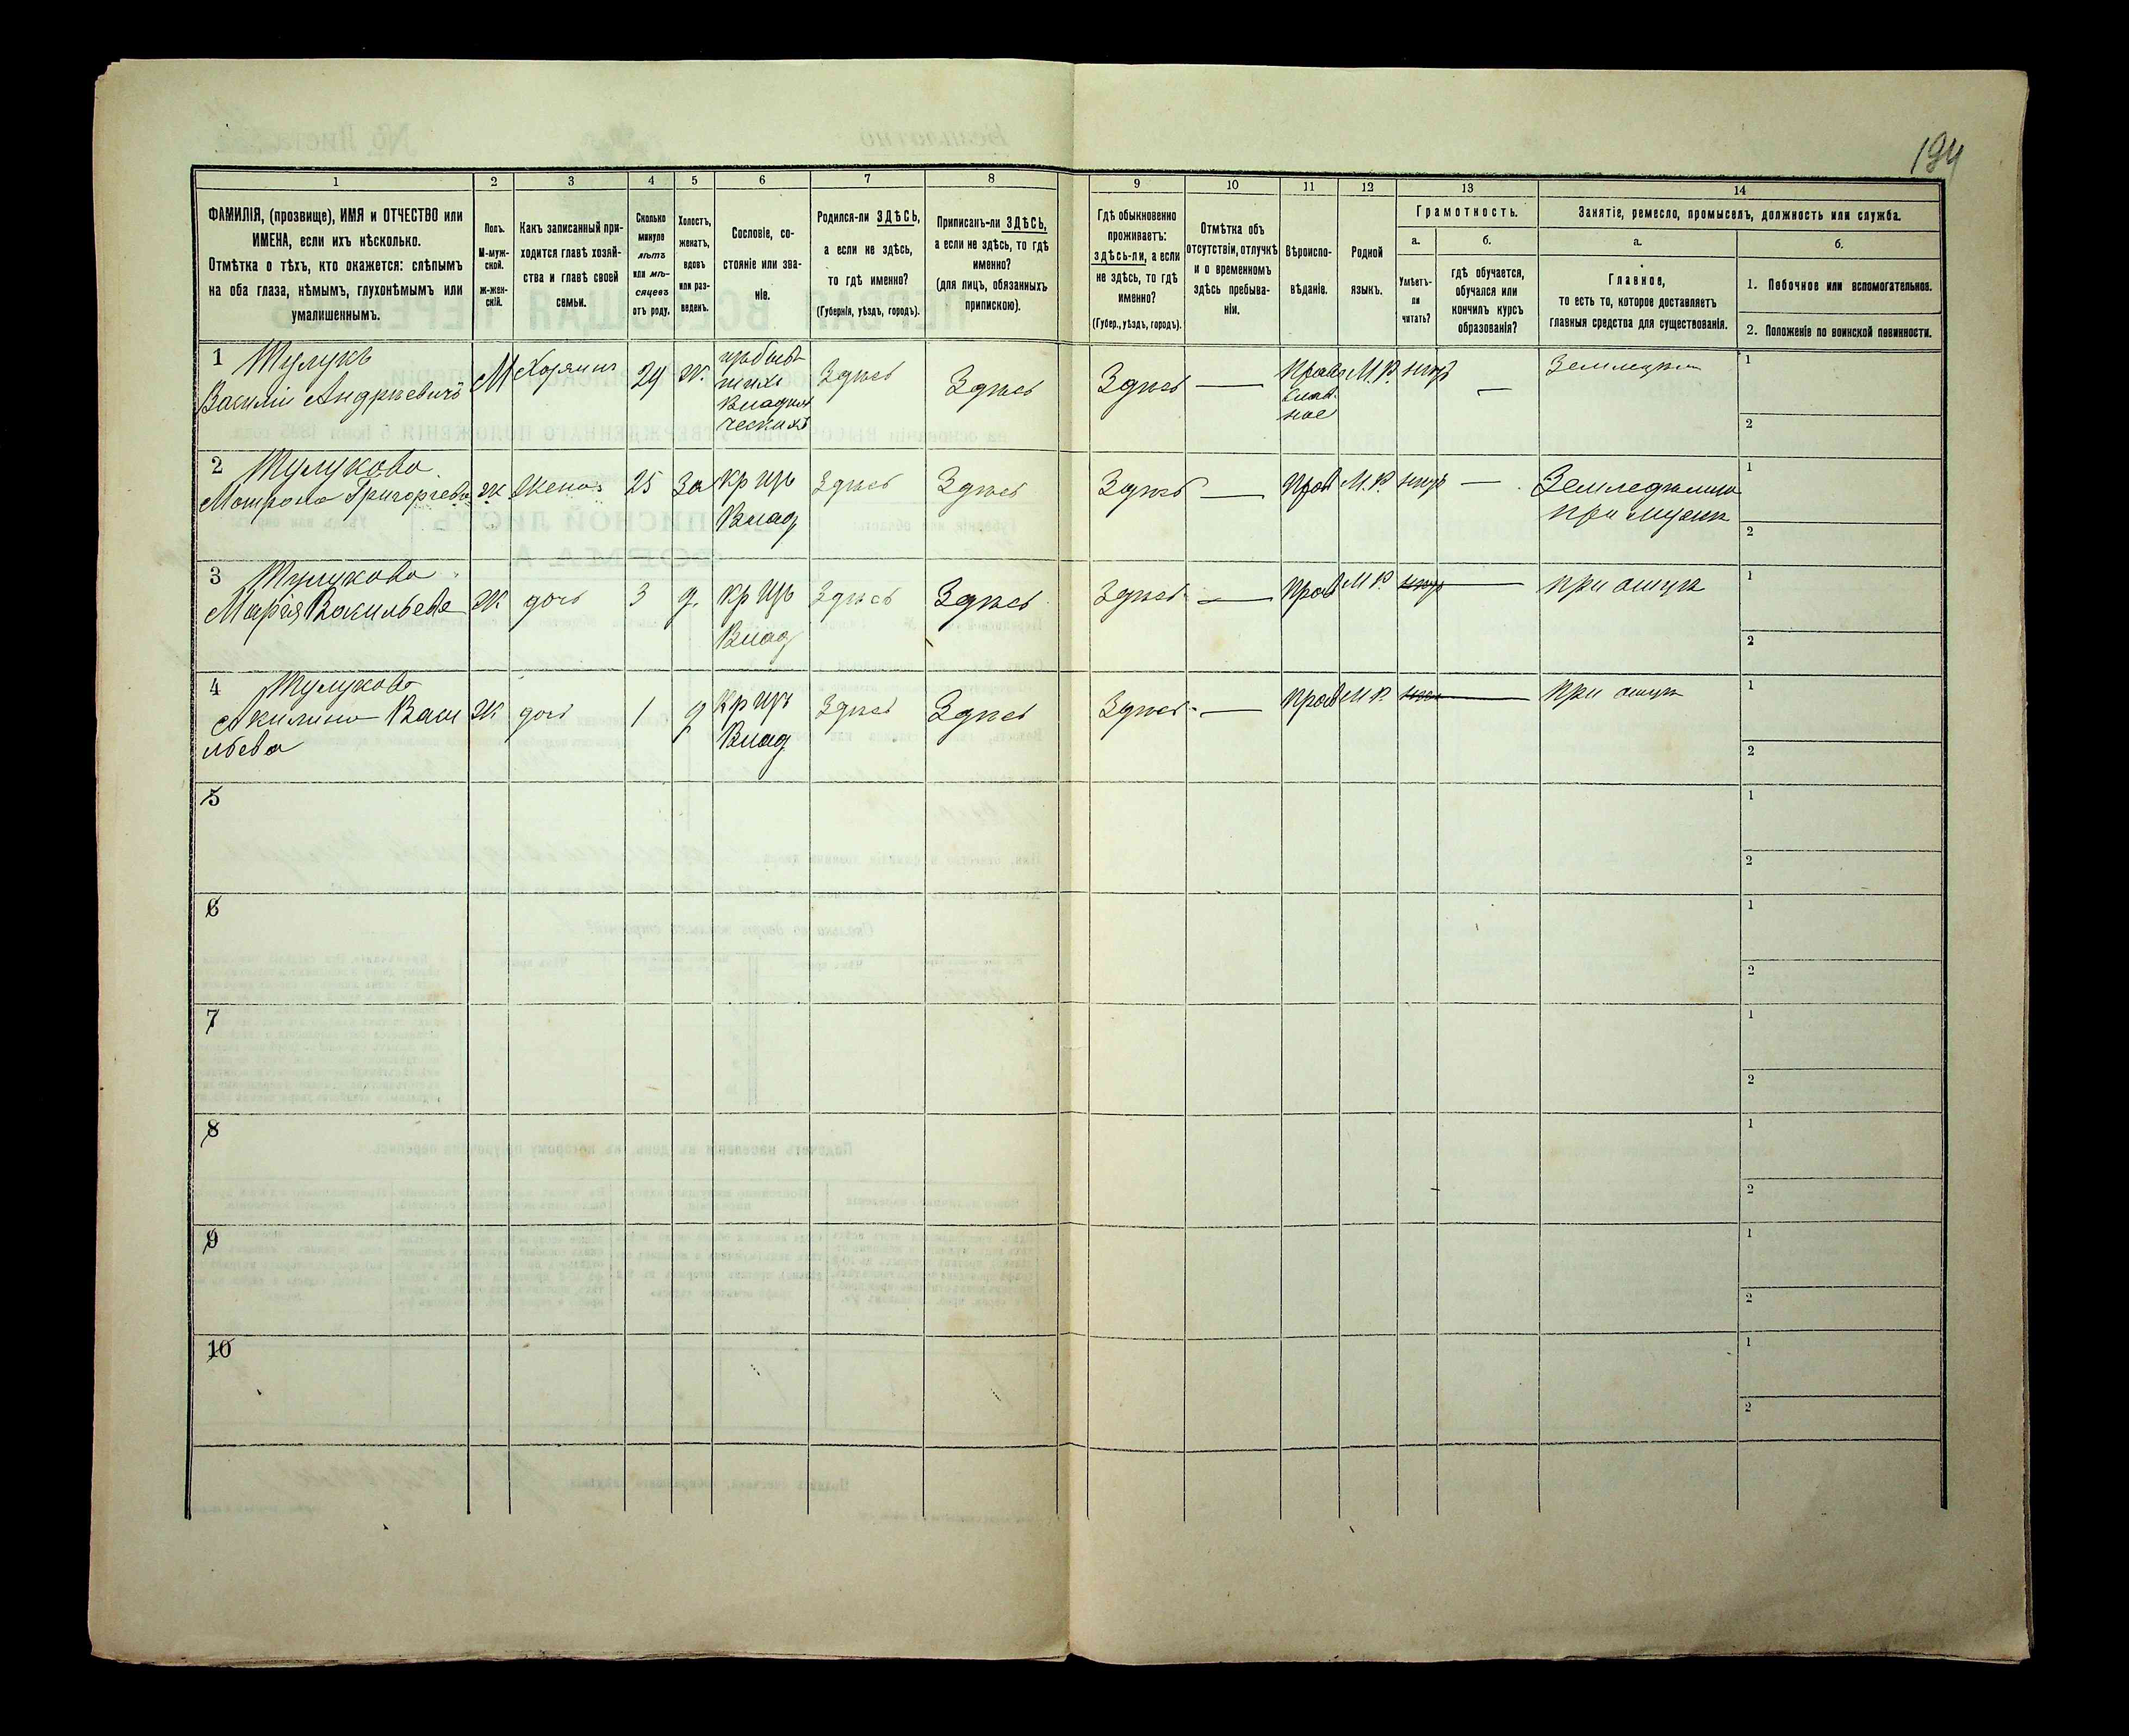 194
1 2 3 4 5 6 7 8 9 10 11 12 13 14
ФАМИЛІЯ, (прозвище), ИМЯ и ОТЧЕСТВО или
ИМЕНА, если ихъ нѣсколько.
Отмѣтка о тѣхъ, кто окажется: слѣпымъ
на оба глаза, нѣмымъ, глухонѣмымъ или
умалишеннымъ.
Полъ.
М-муж-
ской.
Ж-жен-
скій.
Какъ записанный при-
ходится главѣ хозяй-
ства и главѣ своей
семьи.
Сколько
минуло
лѣтъ
или мѣ-
сяцевъ
отъ роду.
Холостъ,
женатъ,
вдовъ
или раз-
веденъ.
Сословіе, со-
стояніе или зва-
ніе.
Родился-ли ЗДѢСЬ,
а если не здѣсь,
то гдѣ именно?
(Губернія, уѣздъ, городъ).
Приписанъ-ли ЗДѢСЬ,
а если не здѣсь, то гдѣ
именно?
(для лицъ, обязанныхъ
припискою).
Гдѣ обыкновенно
проживаетъ:
здѣсь-ли, а если
не здѣсь, то гдѣ
именно?
(Губер., уѣздъ, городъ).
Отмѣтка объ
отсутствіи, отлучкѣ
и о временномъ
здѣсь пребыва-
ніи.
Вѣроиспо-
вѣданіе.
Родной
языкъ.
Грамотность.
а.
Умѣетъ-
ли
читать?
б.
гдѣ обучается,
обучался или
кончилъ курсъ
образованія?
Занятіе, ремесло, промыселъ, должность или служба.
а.
Главное,
то есть то, которое доставляетъ
главныя средства для существованія.
б.
1. Побочное или вспомогательное.
2. Положеніе по воинской повинности.
1 Тулукъ
Василій Андрѣевичъ
М Хозяинъ 24 ж.
Владѣл
ческихъ
Здѣсь Здѣсь Здѣсь —
Право
слав
ное
М.Р. нѣтъ —
1
2
2 Тулукова
Матрона Григорьева
ж жена 25 За кр
Влад
Здѣсь Здѣсь Здѣсь — Прав М.Р. нѣтъ —
Земледѣліе
при мужѣ
1
2
3 Тулукова
Марія Васильева
ж. дочь 3 д. кр
Влад
Здѣсь Здѣсь Здѣсь — Прав М.Р. нѣтъ при отцѣ
1
2
4 Тулукова
Акилина Васи
льева
ж. дочь 1 д кр
Влад
Здѣсь Здѣсь Здѣсь — Прав М.Р. при отцѣ
1
2
5
1
2
6
1
2
7
1
2
8
1
2
9
1
2
10
1
2